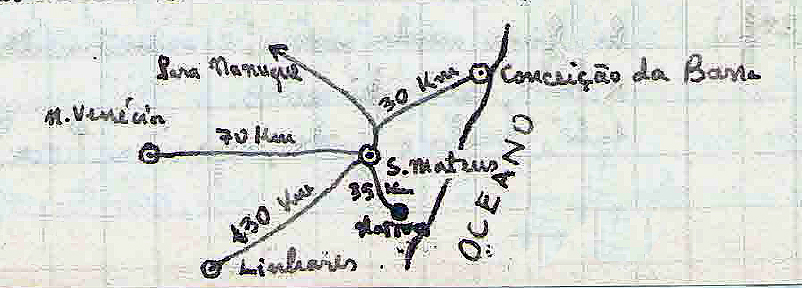 Para Nanuque
30 Km
Conceição da Barra
N. Venécia
70 Km
S. Mateus
35 Km
130 Km
OCEANO
Linhares